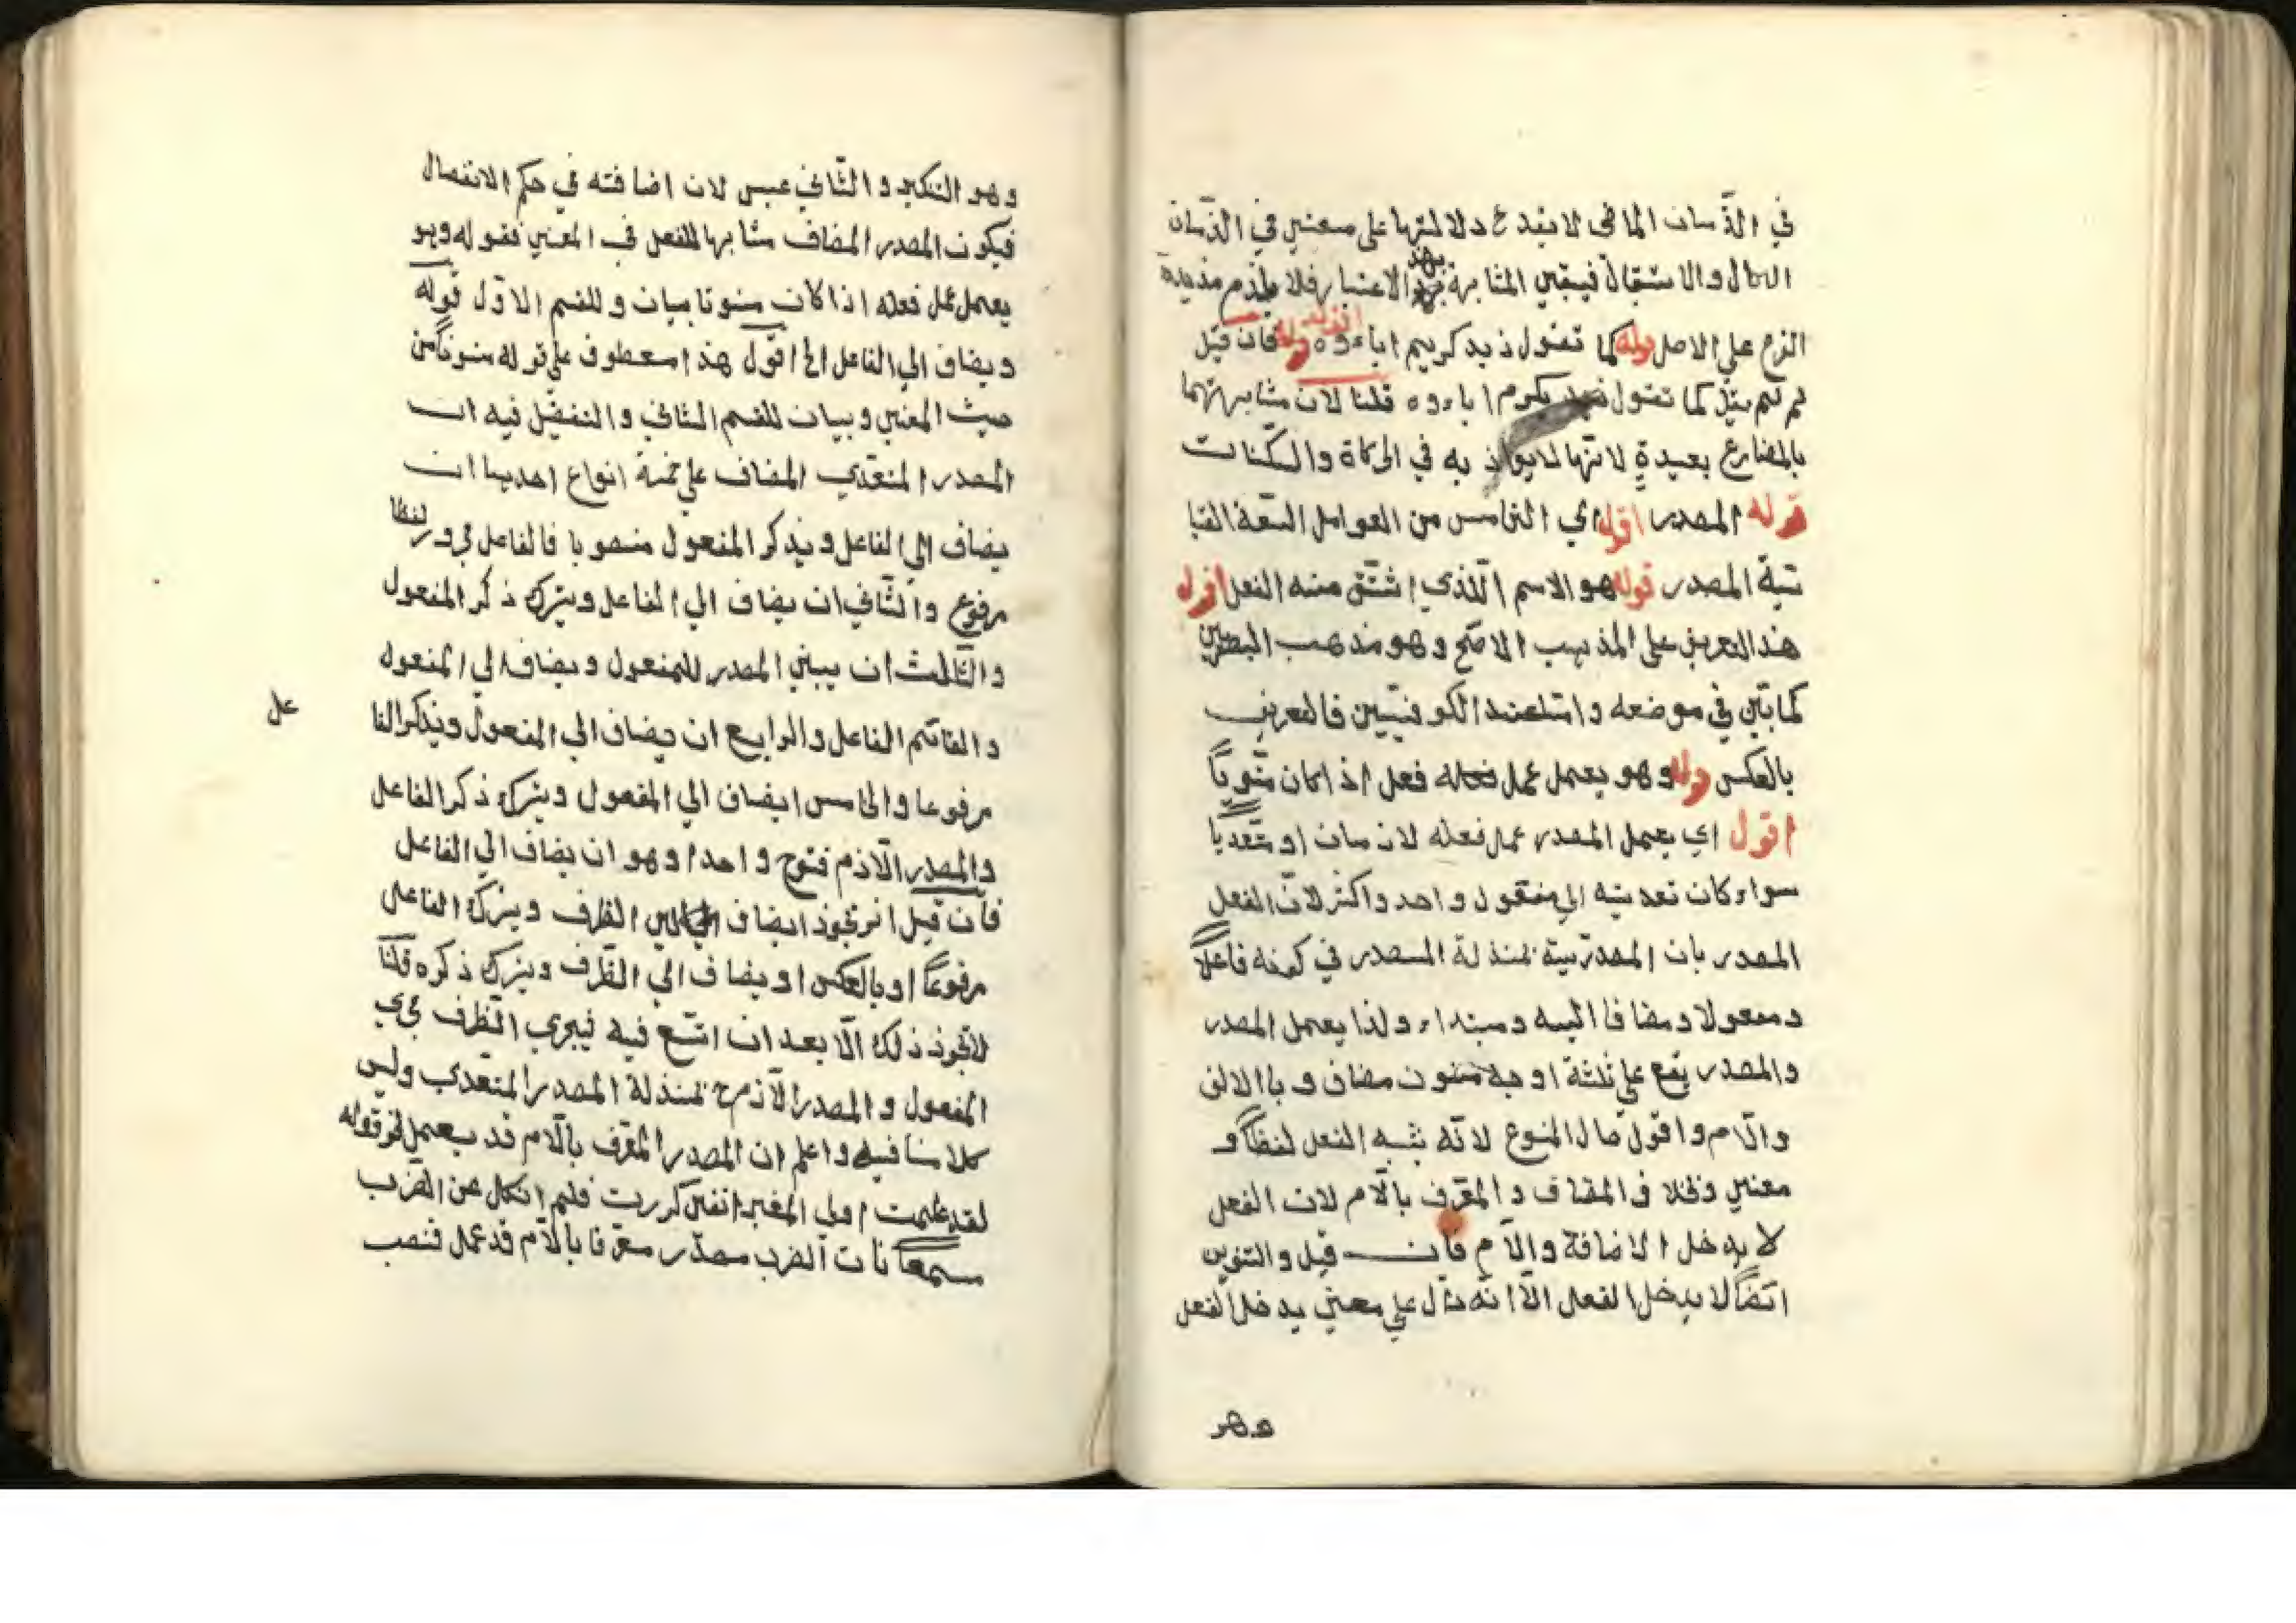 في الزمان الماضي لا يقدح دلالتها على معنين في الزمان
الحال والاستقبال فيبقي المشابهة بهذ الاعتبار فلا يلزم مذيدة
الفرع علي الاصل قوله كما تقول زيد كريم اباءوه قوله فان قيل
لم لم يقل كما تقول مكرم اباءوه قلنا لان مشابهتهما
بالمضارع بعيدة لانها لا يوازن به في الحركاة والسكنات
قوله المصدر اقول اي الخامس من العوامل السبعة القيا
سية المصدر قوله هو الاسم الذي اشتق منه الفعل اقول
هذ التعريف علي المذهب الاصح وهو مذهب البصريين
كما بين في موضعه وامّا عند الكوفيين فالتعريف
بالعكس قوله وهو يعمل عمل فعله فعل اذا كان منونًا
اقول اي يعمل المصدر عمل فعله لازمان او متعديًا
سواء كان تعديته الي مفعول واحد واكثر لان الفعل
المصدر بان المصدرية بمنزلة المصدر في كونه فاعلًا
ومفعولا ومضافا اليه ومبتداء ولذا يعمل المصدر
والمصدر يقع علي ثلثة اوجه منون مضاف وبا الالف
والام واقول مال المنوع لانه يشبه الفعل لفظًا و
معني وقلا في المضاف والمعرف بالام لان الفعل
لا يدخل الاضافة والام فان قيل والتنوين
ايضًا لا يدخل الفعل الا انه دال علي معني يدخل الفعل
وهو
وهو التنكير والثاني عبس لان اضافته في حكم الانفصال
فيكون المصدر المضاف مشابها للفعل في المعني فقوله وهو
يعمل عمل فعله اذا كان منونا بيان وللقسم الاول قوله
ويضاف الي الفاعل الخ اقول هذا معطوف علي قوله منونًا من
حيث المعني وبيان للقسم الثاني والتفضيل فيه ان
المصدر المتعدي المضاف علي خمسة انواع احديها ان
يضاف الي الفاعل ويذكر المفعول منصوبا فالفاعل مجرور لفظا
مرفوع والثاني ان يضاف الي الفاعل ويترك ذكر المفعول
والثالث ان يبني المصدر للمفعول ويضاف الي المفعول
والقائم الفاعل والرابع ان يضاف الي المفعول ويذكر الفا
عل
مرفوعا والخامس ايضاف الي المفعول ويترك ذكر الفاعل
والمصدر الازم فنوع واحدا وهو ان يضاف الي الفاعل
فان قيل تجوز ايضاف الي الظرف ويترك الفاعل
مرفوعًا او بالعكس او يضاف الي الظرف ويترك ذكره قلنا
لا تجوز ذلك الا بعد ان اتسع فيه فيجري الظرف مجري
المفعول والمصدر الازم ح بمنزلة المصدر المتعدي وليس
كلامنا فيه واعلم ان المصدر المعرف بالام قد يعمل نحو قوله
لقد علمت اولي المغيرة انني كررت فلم انكل عن الضرب
مسمعًا فان الضرب مصدر معرفا بالام قد عمل فنصب